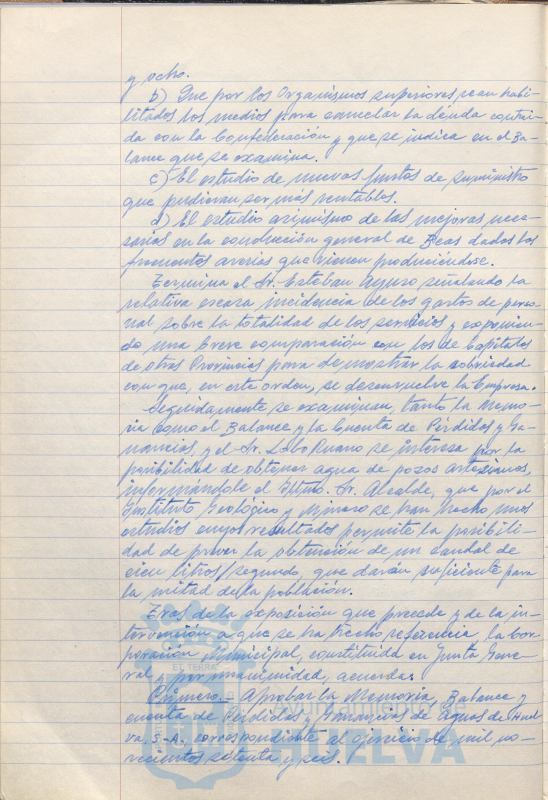 y ocho.
b) Que por los Organismos superiores sean habi-
litados los medios para cancelar la deuda contraí-
da con la Confederación y que se indica en el Ba-
lance que se examina.
c) El estudio de nuevos puntos de suministro
que pudieran ser más rentables.
d) El estudio asimismo de las mejoras nece-
sarias en la conducción general de Beas dadas las
frecuentes averías que vienen produciéndose.
Termina el Sr. Esteban Ayuso señalando la
relativa escasa incidencia de los gastos de perso-
nal sobre la totalidad de los servicios y exponien-
do una breve comparación con los de Capitales
de otras Provincias para demostrar la sobriedad
con que, en este orden, se desenvuelve la Empresa.
Seguidamente se examinan, tanto la Memo-
ria como el Balance y la Cuenta de Pérdidas y Ga-
nancias, y el Sr. Lobo Ruano se interesa por la
posibilidad de obtener agua de pozos artesianos,
informándole el Iltmo. Sr. Alcalde, que por el
Instituto Geológico y Minero se han hecho unos
estudios cuyos resultados permite la posibili-
dad de prever la obtención de un caudal de
cien litros/segundo, que darán suficiente para
la mitad de la población.
Tras de la exposición que precede y de la in-
tervención a que se ha hecho referencia, la Cor-
poración Municipal, constituida en Junta Gene-
ral, y por unanimidad, acuerda:
Primero.- Aprobar la Memoria, Balance y
cuenta de Pérdidas y Ganancias de Aguas de Huel-
va, S.A. correspondiente al ejercicio de mil no-
vecientos setenta y seis.
EL TERRA
Ayuntamiento de
HUELVA